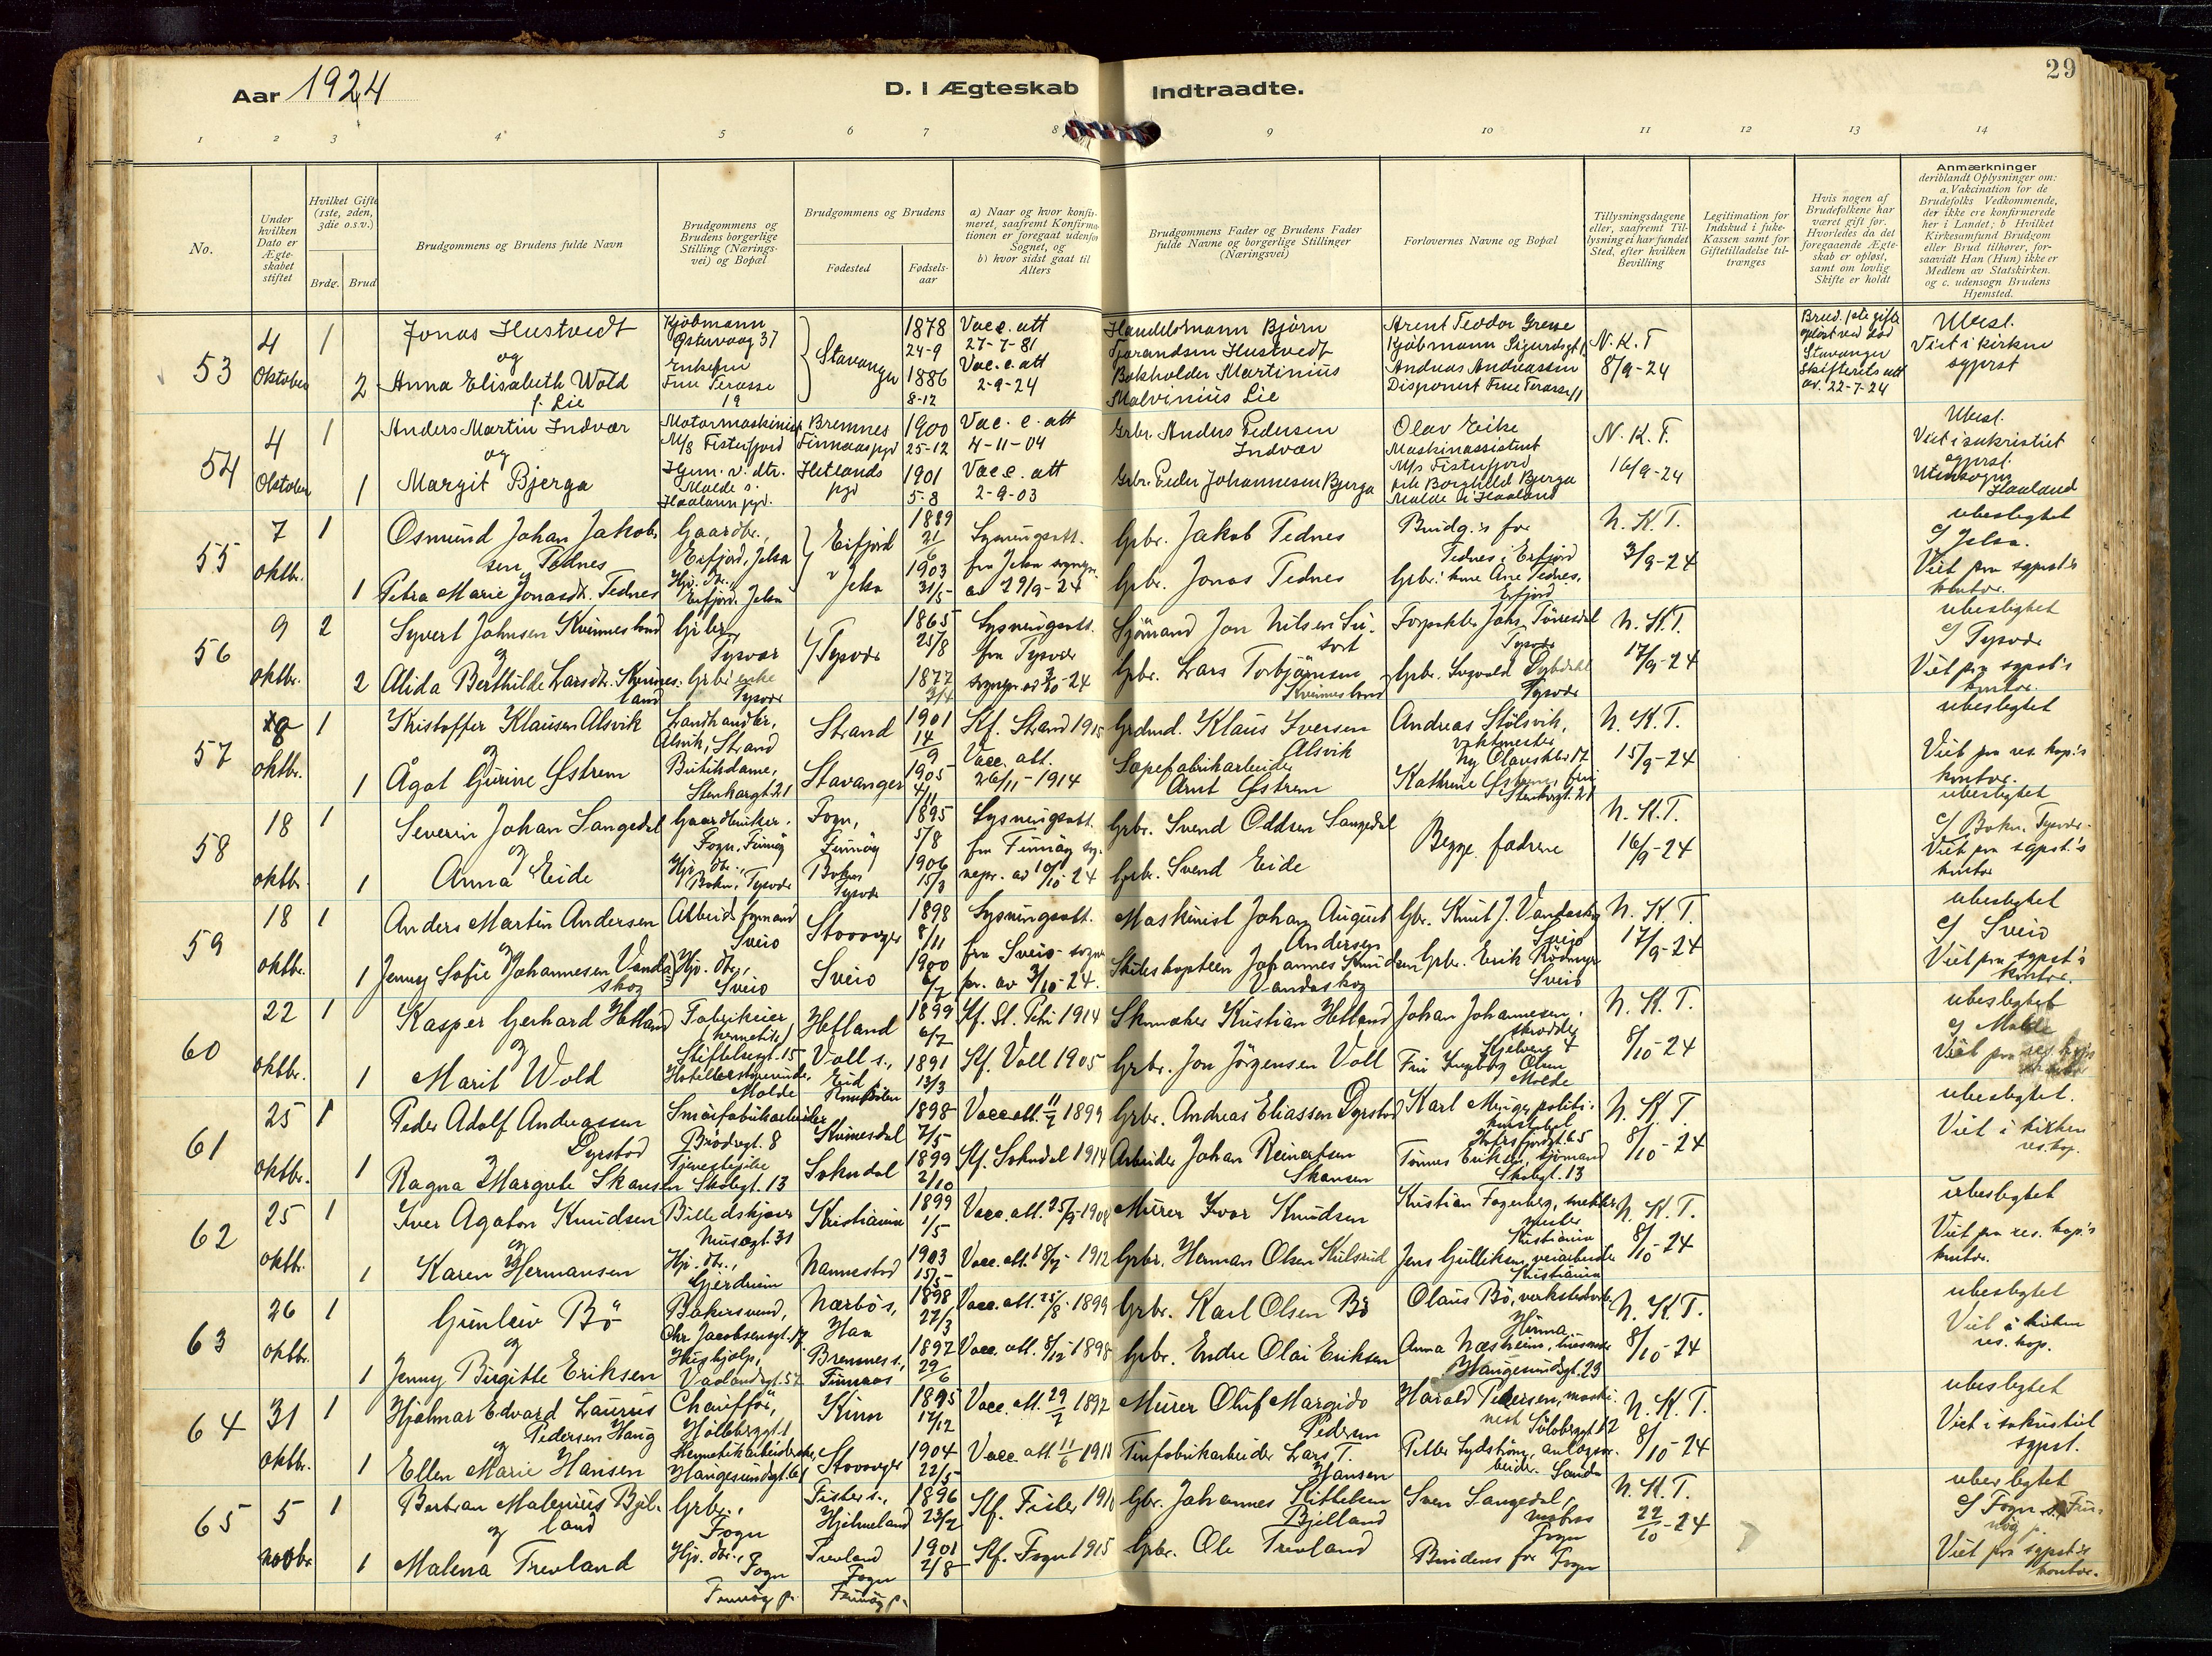 29
Aar 1924
D. I Ægteskab Indtraadte.
1 2 3 4 5 6 7 8 9 10 11 12 13 14
No.
Under hvilken Dato er Ægte-skabet stiftet
Hvilket Gifte (1ste, 2den, 3die o.s.v.)
Brdg. Brud
Brudgommens og Brudens fulde Navn
Brudgommens og Brudens borgerlige Stilling (Nærings-vei) og Bopæl
Brudgommens og Brudens
Fødested
Fødsels-aar
a) Naar og hvor konfir-meret, saafremt Konfirma-tionen er foregaat udenfor Sognet, og b) hvor sidst gaat til Alters
Brudgommens Fader og Brudens Fader fulde Navne og borgerlige Stillinger (Næringsvei)
Forlovernes Navne og Bopæl
Tillysningsdagene eller, saafremt Til-lysning ei har fundet Sted, efter hvilken Bevilling
Legitimation for Indskud i Enke-Kassen samt for Giftetilladelse til-trænges
Hvis nogen af Brudefolkene har været gift før. Hvorledes da det foregaaende Ægte-skab er opløst, samt om lovlig Skifte er holdt
Anmærkninger
deriblandt Oplysninger om: a. Vakcination for de Brudefolks Vedkommende, der ikke ere konfirmerede her i Landet; b Hvilket Kirkesamfund Brudgom eller Brud tilhører, for-saavidt Han (Hun) ikke er Medlem av Statskirken. og c. udensogn Brudens Hjemsted.
53
4 Oktober
1
2
Jonas Hustvedt
og
Anna Elisabeth Wold
f. Lie
Kjøbmann
Østervaag 37
Enkefru
Frue Terasse
19
Stavanger
1878
24-9
1886
8-12
Vacc. att
27-7-81
Vac. e. att
2-9-24
Handelsmann Bjørn
Tjorandsen Hustvedt
Bokholder Martinius
Malvinius Lie
Arent Teodor Greve
Kjøbmann Sigurdsgt 1
Andreas Andreassen
Disponent Frue Terasse 11
N. K. T
8/9-24
Brud. 1ste gifte
opløst ved død
Stavanger
Skifteretts att
av. 22-7-24
Ubesl.
Viet i kirken
sgprst
54
4 Oktober
1
1
Anders Martin Indvær
og
Margit Bjerga
Motormaskinist
M/S Fisterfjord
Hjem. v. dtr.
Malde s.
Haaland pgd.
Bremnes
Finnaas pgd
Hetlands
pgd
1900
25-12
1901
5-8
Vac. e. att
4-11-04
Vac e. att
2-9-03
Grbr. Anders Pedersen
Indvær
Grbr. Peder Johannesen Bjerga
Olav Eike
Maskinassistent
M/S Fisterfjord
frk Borghild Bjerga
Malde i Haaland
N. K. T.
16/9-24
Ubesl.
Viet i sakristiet
sgprst.
Utensogns
Haaland
55
7 oktbr.
1
1
Osmund Johan Jakob-
sen Tednes
og
Petra Marie Jonasdtr. Tednes
Gaardbr.,
Erfjord, Jelsa
Hjv. dtr.,
Erfjord, Jelsa
Erfjord
Jelsa
1889
21/6
1903
31/5
Lysningsatt.
fra Jelsa sogнpr.
av 29/9-24
Grbr. Jakob Tednes
Grbr. Jonas Tednes
Brudg.'s far
Tednes i Erfjord
Grbr. Arne Tednes,
Erfjord
N. K. T.
3/9-24
ubeslegtet
c/ Jelsa.
Viet paa sgpst's
kontor.
56
9 oktbr.
2
2
Syvert Johnsen Kvinnesland
og
Alida Berthilde Larsdtr. Kvinnes-
land
Grbr,
Tysvær
Grbr. enke
Tysvær
Tysvær
1865
25/8
1877
Lysningsatt.
fra Tysvær
sognepr. av 3/10-24
Sjømand Jon Nilsen
Grbr. Lars Torbjørnsen
Kvinnesland
Tysvær
Tysvær
N. K. T.
17/9-24
ubeslegtet
c/ Tysvær
Viet paa sgpst's
kontor.
57
8 oktbr.
1
1
Kristoffer Klausen Alsvik
og
Ågot Gurine Østrem
Landhandler,
Alsvik, Strand
Butikdame,
Stenkargt. 21
Strand
Stavanger
1901
14/9
1905
4/11
Kf. Strand 1915
Vacc. att.
26/11-1914
Grdmd. Klaus Iversen
Alsvik
Sæpefabrikarbeider
Arnt Østrem
Andreas Stølsvik,
vaktmester
Ny Olavskleiv 17
Kathrine Østrem, fru
Stenkargt. 21
N. K. T.
15/9-24
ubeslegtet
Viet paa res. kap.'s
kontor.
58
18 oktbr.
1
1
Severin Johan Langedal
og
Anna Eide
Gaardbruker.
Fogn, Finnøy
Hjv. dtr.,
Bokn, Tysvær
Fogn,
Finnøy
Bokn,
Tysvær
1895
5/8
1906
15/3
Lysningsatt.
fra Finnøy sog-
nepr. av 10/10-24
Grbr. Svend Oddsen Langedal
Grbr. Svend Eide
Begge fædrene
N. K. T.
16/9-24
ubeslegtet
c/ Bokn. Tysvær.
Viet paa sgpst.'s
kontor
59
18 oktbr.
1
1
Anders Martin Andersen
og
Jenny Sofie Johannesen Vanda-
skog
Arbeidsformand
Sveio
Hjv. dtr.,
Sveio
Stavanger
Sveio
1898
8/11
1900
6/7
Lysningsatt.
fra Sveio sogne-
pr. av 3/10-24.
Maskinist Johan August
Andersen
Skibskaptein Johannes Knudsen
Vandaskog
Gbr. Knut J. Vandaskog
Sveio
Grbr. Erik
Sveio
N. K. T.
17/9-24
ubeslegtet
c/ Sveio
Viet paa sgpst's
kontor.
60
22 oktbr.
1
1
Kasper Gerhard Hetland
og
Marit Wold
Fabrikeier
(hermetik)
Stiftelsesgt. 15
Hotelbestyrerinde,
Molde
Hetland
Voll s.,
Eid
Romsdalen
1899
6/7
1891
13/3
Kf. St. Petri 1914
Kf. Voll 1905
Skomaker Kristian Hetland
Grbr. Jon Jørgensen Voll
Johan Johannesen,
skrædder
Fru Ingeborg Olsen
Molde
N. K. T.
8/10-24
ubeslegtet
c/ Molde
Viet paa res. kap's
61
25 oktbr.
1
1
Peder Adolf Andreassen
Dyrstad
og
Ragna Margrete Skansen
Smørfabrikarbeider
Brødregt. 8
Tjenestepike
Skolegt. 13
Kvinesdal
Sokndal
1898
7/5
1899
2/10
Vacc. att. 11/7 1899
Kf. Sokndal 1914
Grbr. Andreas Eliassen Dyrstad
Arbeider Johan Reinertsen
Skansen
Karl Meinge, politi-
konstabel
Hafrsfjordgt. 65
Tønnes Eriksen, sjømand
Skolegt. 13
N. K. T.
8/10-24
ubeslegtet.
Viet i kirken
res. kap.
62
25 oktbr.
1
1
Iver Agaton Knudsen
og
Karen Hermansen
Billedskjærer
Musegt. 31
Hjv. dtr.,
Gjerdrum
Kristiania
Nannestad
1899
1/5
1903
15/5
Vacc. att. 25/9-1908
Vacc. att. 18/7-1912
Murer Ivar Knudsen
Grbr. Herman Olsen Kulsrud
Kristian Fagerberg, snekker-
mester
Kristiania
Jens Gulliksen, veiarbeider
Kristiania
N. K. T.
8/10-24
ubeslegtet
Viet paa res. kap.'s
kontor.
63
26 oktbr.
1
1
Gunleiv Bø
og
Jenny Birgitte Eriksen
Bakersvend,
Chr. Jacobsensgt. 17
Hushjelp,
Vaalandsgt. 57
Nærbø s.,
Haa
Bremnes s.,
Finnaas
1898
27/3
1897
29/6
Vacc. att. 25/8-1899
Vacc. att. 8/12-1898
Grbr. Karl Olsen Bø
Grbr. Endre Olai Eriksen
Olaus Bø, verkstedarb.
Hinna
Anna Næsheim,
Haugesundsgt. 29
N. K. T.
8/10-24
ubeslegtet
Viet i kirken
res. kap.
64
31 oktbr.
1
1
Hjalmar Edvard Laurus
Pedersen Haug
og
Ellen Marie Hansen
Chauffør,
Hollebergsgt 1
Hermetikarbeiderske,
Haugesundsgt. 61
Kinn
Stavanger
1895
17/12
1904
22/5
Vacc. att. 29/7 1897
Vacc. att 11/6-1918
Murer Oluf Margido
Pedersen
Tinfabrikarbeider Lars T.
Hansen
Harald Pedersen, maski-
nist Sølvbergt 12
Petter Lydstrøm, anlægsar-
beider. Sauda
N. K. T.
8/10-24
ubeslegtet
Viet i sakristiet
sgpst.
65
5 novbr.
1
1
Bertran Malenius Bjel-
land
og
Malena Trevland
Grbr.,
Fogn
Hjv. dtr.,
Fogn
Finnøy p.
Fister s.,
Hjelmeland
Trevland
Fogn
Finnøy p.
1896
23/2
1901
2/8
Kf. Fister 1910
Kf. Fogn 1915
Gbr. Johannes Kittelsen
Bjelland
Grbr. Ole Trevland
Sven Langedal,
Fogn
Brudens far Fogn
N. K. T.
22/10-24
ubeslegtet
c/ Fogn s. Fin-
nøy p.
Viet paa sgpst's
kontor.